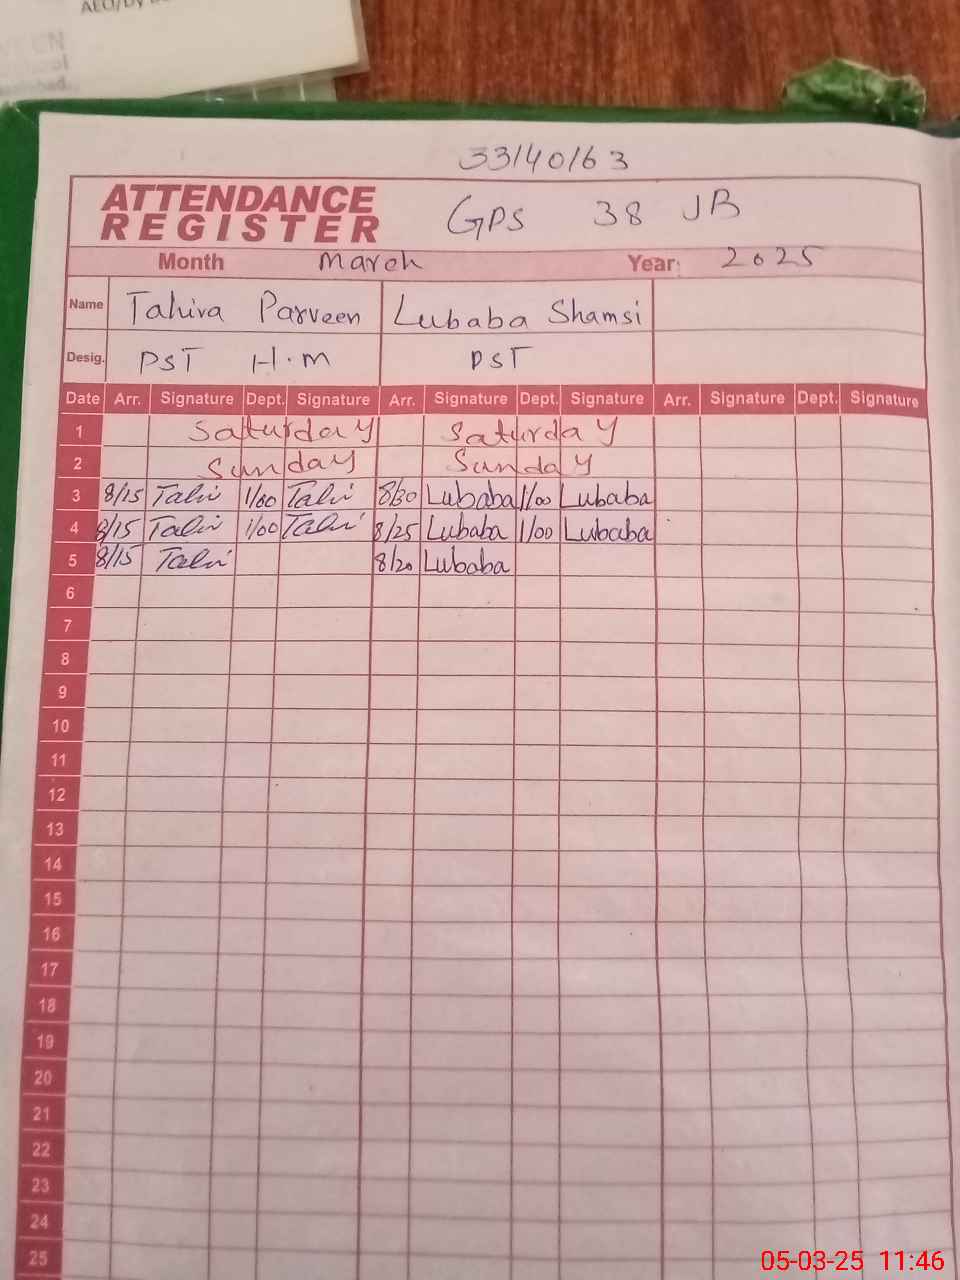 AEO/Dy
33140163
ATTENDANCE
REGISTER
GPS 38 JB
Month March Year: 2025
Name Tahira Parveen Lubaba Shamsi
Desig. PST H.M PST
Date Arr. Signature Dept. Signature Arr. Signature Dept. Signature Arr. Signature Dept. Signature
1 Saturday Saturday
2 Sunday Sunday
3 8/15 Tahir 1/00 Tahir 8/30 Lubaba 1/00 Lubaba
4 8/15 Tahir 1/00 Tahir 8/25 Lubaba 1/00 Lubaba
5 8/15 Tahir 8/20 Lubaba
6
7
8
9
10
11
12
13
14
15
16
17
18
19
20
21
22
23
24
25
05-03-25 11:46